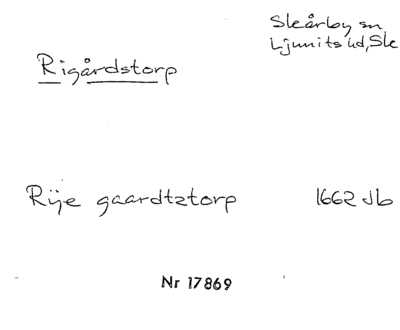 Skårby sn
Ljunits hd, Sk
Rigårdstorp
Rije gaardtztorp 1662 Jb
Nr 17869